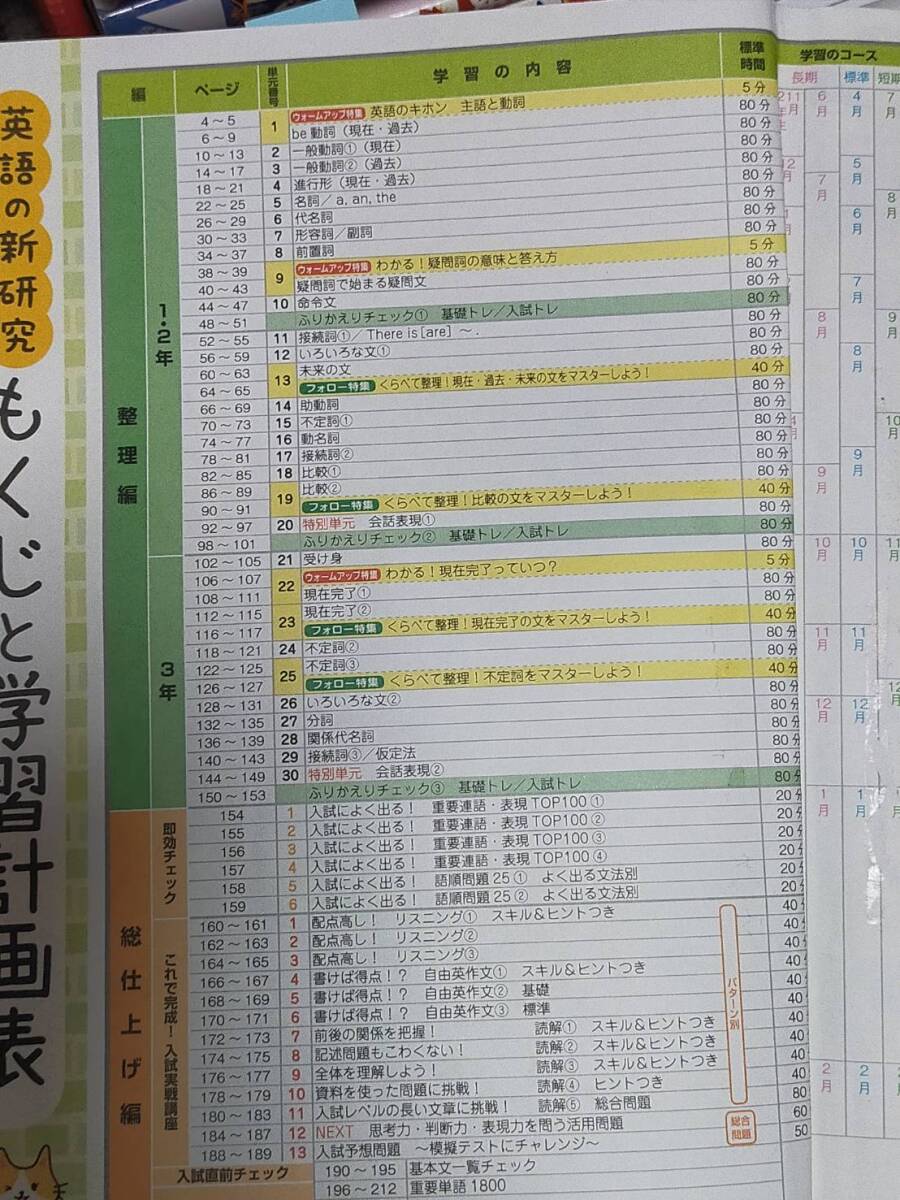 英語の新研究
もくじと学習計画表
編 ページ 単元番号 学習の内容 標準時間 学習のコース
長期 標準 短期
整理編
1・2年
4～5 1 ウォームアップ特集 英語のキホン 主語と動詞 5分
6～9 be動詞（現在・過去） 80分
10～13 2 一般動詞①（現在） 80分
14～17 3 一般動詞②（過去） 80分
18～21 4 進行形（現在・過去） 80分
22～25 5 名詞／a, an, the 80分
26～29 6 代名詞 80分
30～33 7 形容詞／副詞 80分
34～37 8 前置詞 80分
38～39 9 ウォームアップ特集 わかる！疑問詞の意味と答え方 5分
40～43 疑問詞で始まる疑問文 80分
44～47 10 命令文 80分
48～51 ふりかえりチェック① 基礎トレ／入試トレ 80分
52～55 11 接続詞①／There is[are] ～. 80分
56～59 12 いろいろな文① 80分
60～63 13 未来の文 80分
64～65 フォロー特集 くらべて整理！現在・過去・未来の文をマスターしよう！ 40分
66～69 14 助動詞 80分
70～73 15 不定詞① 80分
74～77 16 動名詞 80分
78～81 17 接続詞② 80分
82～85 18 比較① 80分
86～89 19 比較② 80分
90～91 フォロー特集 くらべて整理！比較の文をマスターしよう！ 40分
92～97 20 特別単元 会話表現① 80分
98～101 ふりかえりチェック② 基礎トレ／入試トレ 80分
3年
102～105 21 受け身 80分
106～107 22 ウォームアップ特集 わかる！現在完了っていつ？ 5分
108～111 現在完了① 80分
112～115 23 現在完了② 80分
116～117 フォロー特集 くらべて整理！現在完了の文をマスターしよう！ 40分
118～121 24 不定詞② 80分
122～125 25 不定詞③ 80分
126～127 フォロー特集 くらべて整理！不定詞をマスターしよう！ 40分
128～131 26 いろいろな文② 80分
132～135 27 分詞 80分
136～139 28 関係代名詞 80分
140～143 29 接続詞③／仮定法 80分
144～149 30 特別単元 会話表現② 80分
150～153 ふりかえりチェック③ 基礎トレ／入試トレ 80分
総仕上げ編
即効チェック
154 1 入試によく出る！ 重要連語・表現TOP100① 20分
155 2 入試によく出る！ 重要連語・表現TOP100② 20分
156 3 入試によく出る！ 重要連語・表現TOP100③ 20分
157 4 入試によく出る！ 重要連語・表現TOP100④ 20分
158 5 入試によく出る！ 語順問題25① よく出る文法別 20分
159 6 入試によく出る！ 語順問題25② よく出る文法別 20分
これで完成！入試実戦講座
160～161 1 配点高し！ リスニング① スキル＆ヒントつき 40
162～163 2 配点高し！ リスニング② 40
164～165 3 配点高し！ リスニング③ 40
166～167 4 書けば得点！？ 自由英作文① スキル＆ヒントつき 40
168～169 5 書けば得点！？ 自由英作文② 基礎 40
170～171 6 書けば得点！？ 自由英作文③ 標準 40
172～173 7 前後の関係を把握！ 読解① スキル＆ヒントつき 40
174～175 8 記述問題もこわくない！ 読解② スキル＆ヒントつき 40
176～177 9 全体を理解しよう！ 読解③ スキル＆ヒントつき 40
178～179 10 資料を使った問題に挑戦！ 読解④ ヒントつき 40
パターン別
180～183 11 入試レベルの長い文章に挑戦！ 読解⑤ 総合問題 80
184～187 12 NEXT 思考力・判断力・表現力を問う活用問題 60
188～189 13 入試予想問題 ～模擬テストにチャレンジ～ 50
総合問題
入試直前チェック
190～195 基本文一覧チェック
196～212 重要単語1800
6月
7月
8月
9月
10月
11月
12月
1月
2月
4月
5月
6月
7月
8月
9月
10月
11月
12月
1月
2月
7月
8月
9月
10月